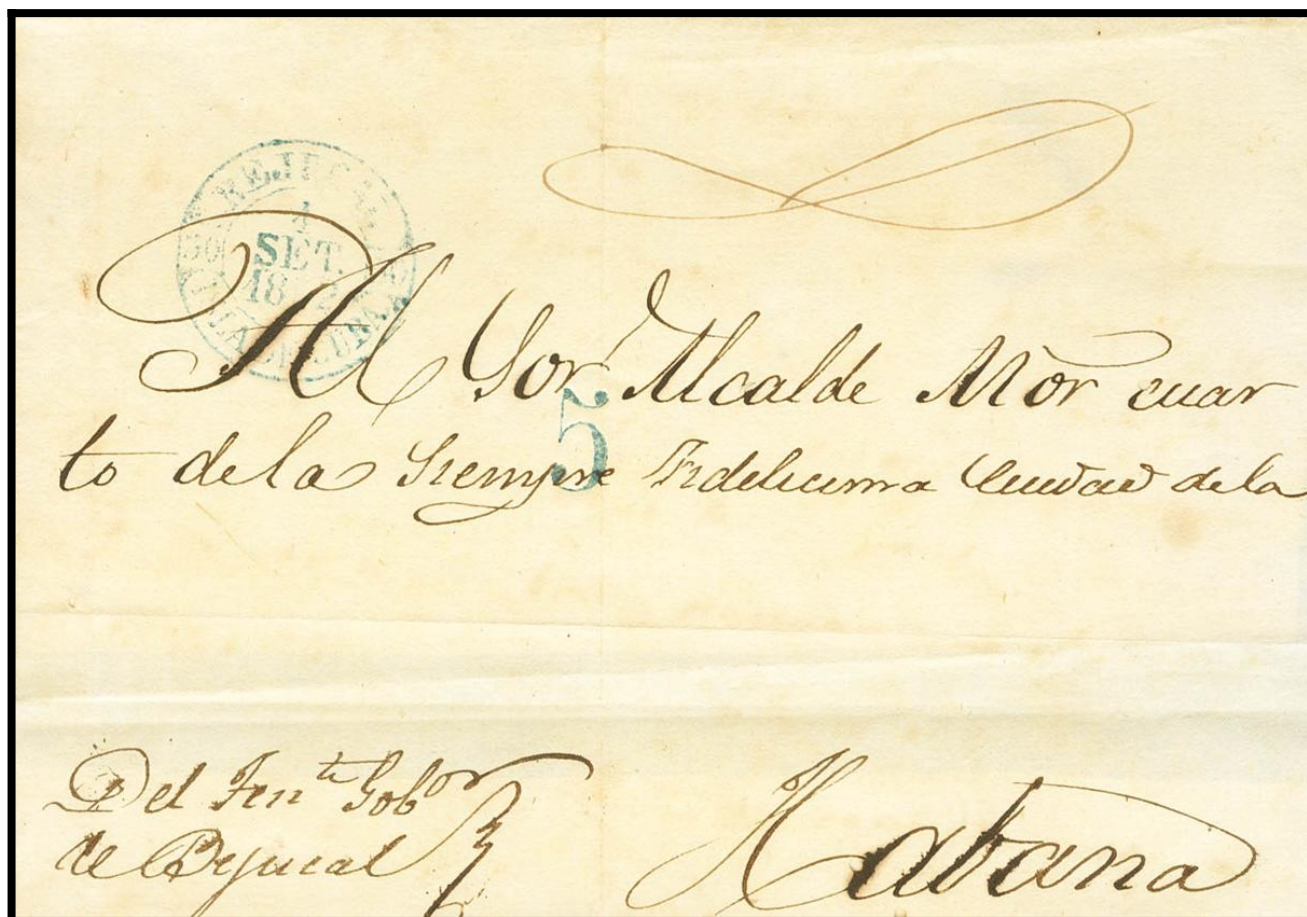 BEJUCAL
4
SET.
Al Sor Alcalde Mor cuar
5
to de la Siempre Fidelisima Ciudad de la
Del Tente Gobor
de Bejucal
Habana